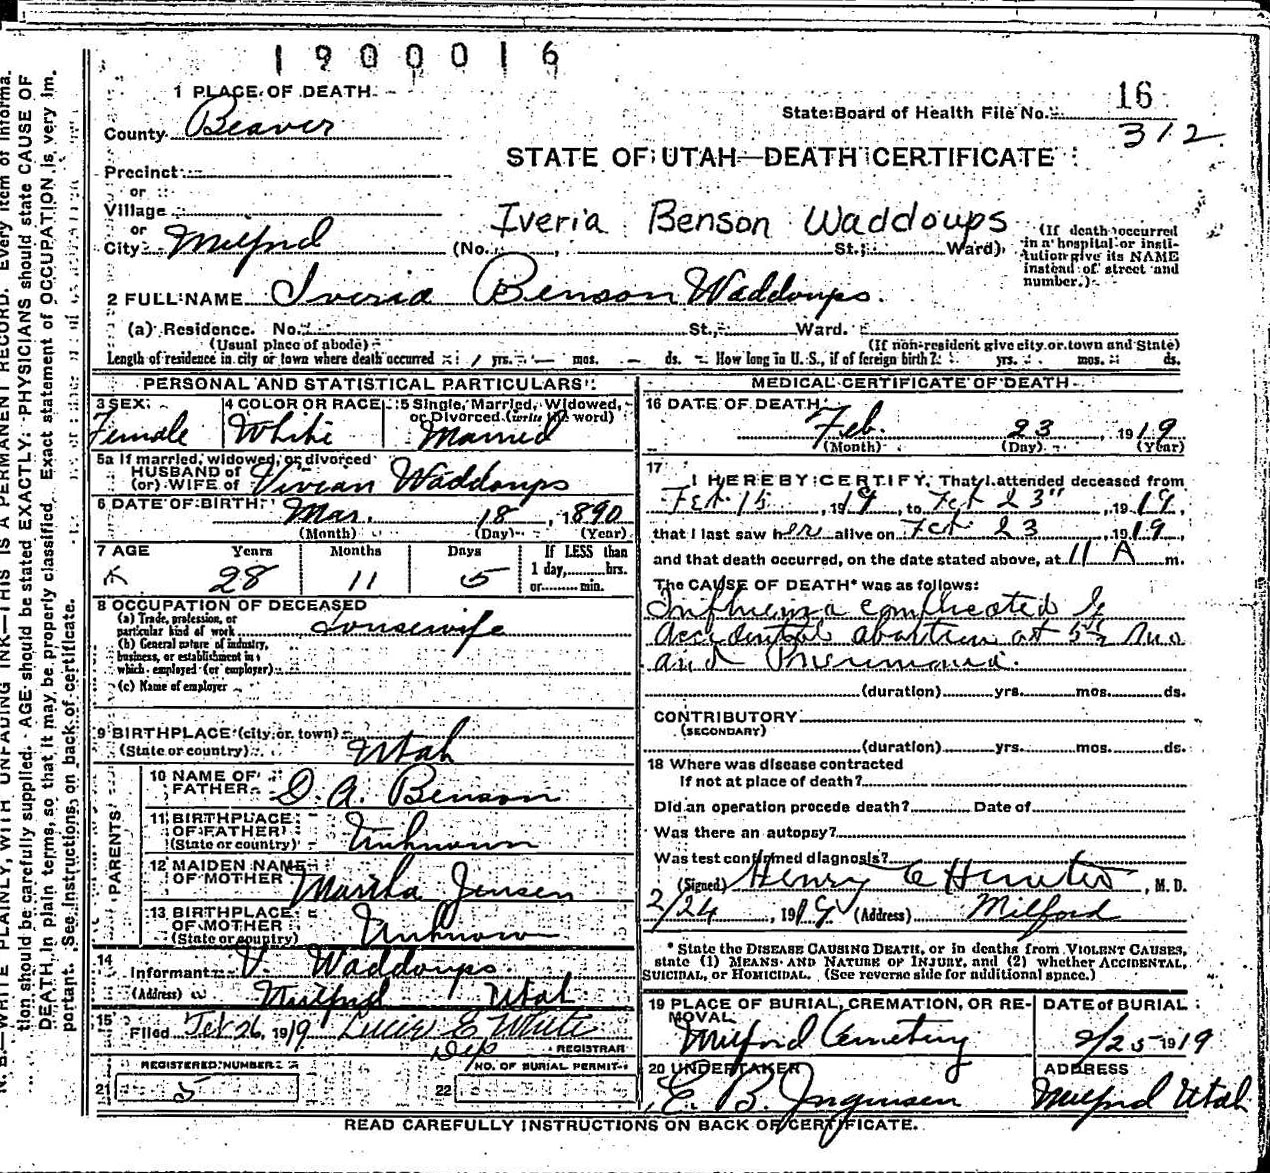 1900016
1 PLACE OF DEATH
County Beaver
State Board of Health File No. 16
312
STATE OF UTAH—DEATH CERTIFICATE
Precinct
or
Village
or
City Milford
Iveria Benson Waddoups
(No. St.; Ward)
(If death occurred in a hospital or institution give its NAME instead of street and number.)
2 FULL NAME Iveria Benson Waddoups.
(a) Residence. No. St., Ward.
(Usual place of abode) (If non-resident give city or town and State)
Length of residence in city or town where death occurred 1 yrs. — mos. — ds. How long in U. S., if of foreign birth? yrs. mos. ds.
PERSONAL AND STATISTICAL PARTICULARS
3 SEX: Female
4 COLOR OR RACE White
5 Single, Married, Widowed, or Divorced (write the word) Married
5a If married, widowed, or divorced
HUSBAND of
(or) WIFE of Vivian Waddoups
6 DATE OF BIRTH: Mar. 18, 1890
(Month) (Day) (Year)
7 AGE Years Months Days If LESS than
28 11 5 1 day,........hrs.
or.........min.
8 OCCUPATION OF DECEASED
(a) Trade, profession, or
particular kind of work Housewife
(b) General nature of industry,
business, or establishment in
which employed (or employer)
(c) Name of employer
9 BIRTHPLACE (city or town)
(State or country) Utah
PARENTS
10 NAME OF FATHER D. A. Benson
11 BIRTHPLACE OF FATHER (State or country) Unknown
12 MAIDEN NAME OF MOTHER Martha Jensen
13 BIRTHPLACE OF MOTHER (State or country) Unknown
14
Informant V. Waddoups.
(Address) Milford Utah
15
Filed Feb 26, 1919 Lucie E White
Dep REGISTRAR
REGISTERED NUMBER
NO. OF BURIAL PERMIT
21 5 22
MEDICAL CERTIFICATE OF DEATH
16 DATE OF DEATH
Feb. 23, 1919
(Month) (Day) (Year)
17
I HEREBY CERTIFY, That I attended deceased from
Feb 15, 1919, to Feb 23", 1919,
that I last saw her alive on Feb 23, 1919,
and that death occurred, on the date stated above, at 11 A m.
The CAUSE OF DEATH* was as follows:
Influenza complicated by
accidental abortion at 5½ mos
and Pneumonia.
(duration) yrs. mos. ds.
CONTRIBUTORY
(SECONDARY)
(duration) yrs. mos. ds.
18 Where was disease contracted
If not at place of death?
Did an operation procede death? Date of
Was there an autopsy?
Was test confirmed diagnosis?
(Signed) Henry C Hunter, M. D.
2/24, 1919 (Address) Milford
* State the DISEASE CAUSING DEATH, or in deaths from VIOLENT CAUSES,
state (1) MEANS AND NATURE OF INJURY, and (2) whether ACCIDENTAL,
SUICIDAL, or HOMICIDAL. (See reverse side for additional space.)
19 PLACE OF BURIAL, CREMATION, OR REMOVAL
Milford Cemetery
DATE of BURIAL
2/25 1919
20 UNDERTAKER
C. B. Jorgensen
ADDRESS
Milford Utah
READ CAREFULLY INSTRUCTIONS ON BACK OF CERTIFICATE.
N. B.—WRITE PLAINLY, WITH UNFADING INK—THIS IS A PERMANENT RECORD. Every item of informa-
tion should be carefully supplied. AGE should be stated EXACTLY. PHYSICIANS should state CAUSE OF
DEATH in plain terms, so that it may be properly classified. Exact statement of OCCUPATION is very im-
portant. See instructions on back of certificate.